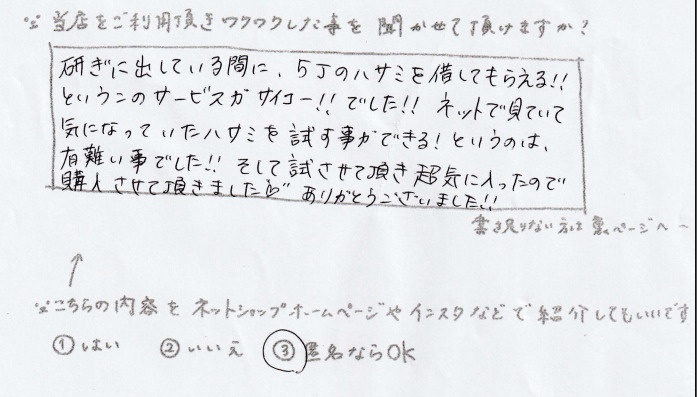 ※当店をご利用頂きワクワクした事を聞かせて頂けますか?
研ぎに出している間に、5丁のハサミを借してもらえる!!
というこのサービスがサイコー!!でした!! ネットで見ていて
気になっていたハサミを試す事ができる!というのは、
有難い事でした!! そして試させて頂き超気に入ったので
購入させて頂きました ありがとうございました!!
書き足りない方は裏ページへ→
↑
※こちらの内容をネットショップホームページやインスタなどで紹介してもいいです
①はい ②いいえ ③匿名ならOK